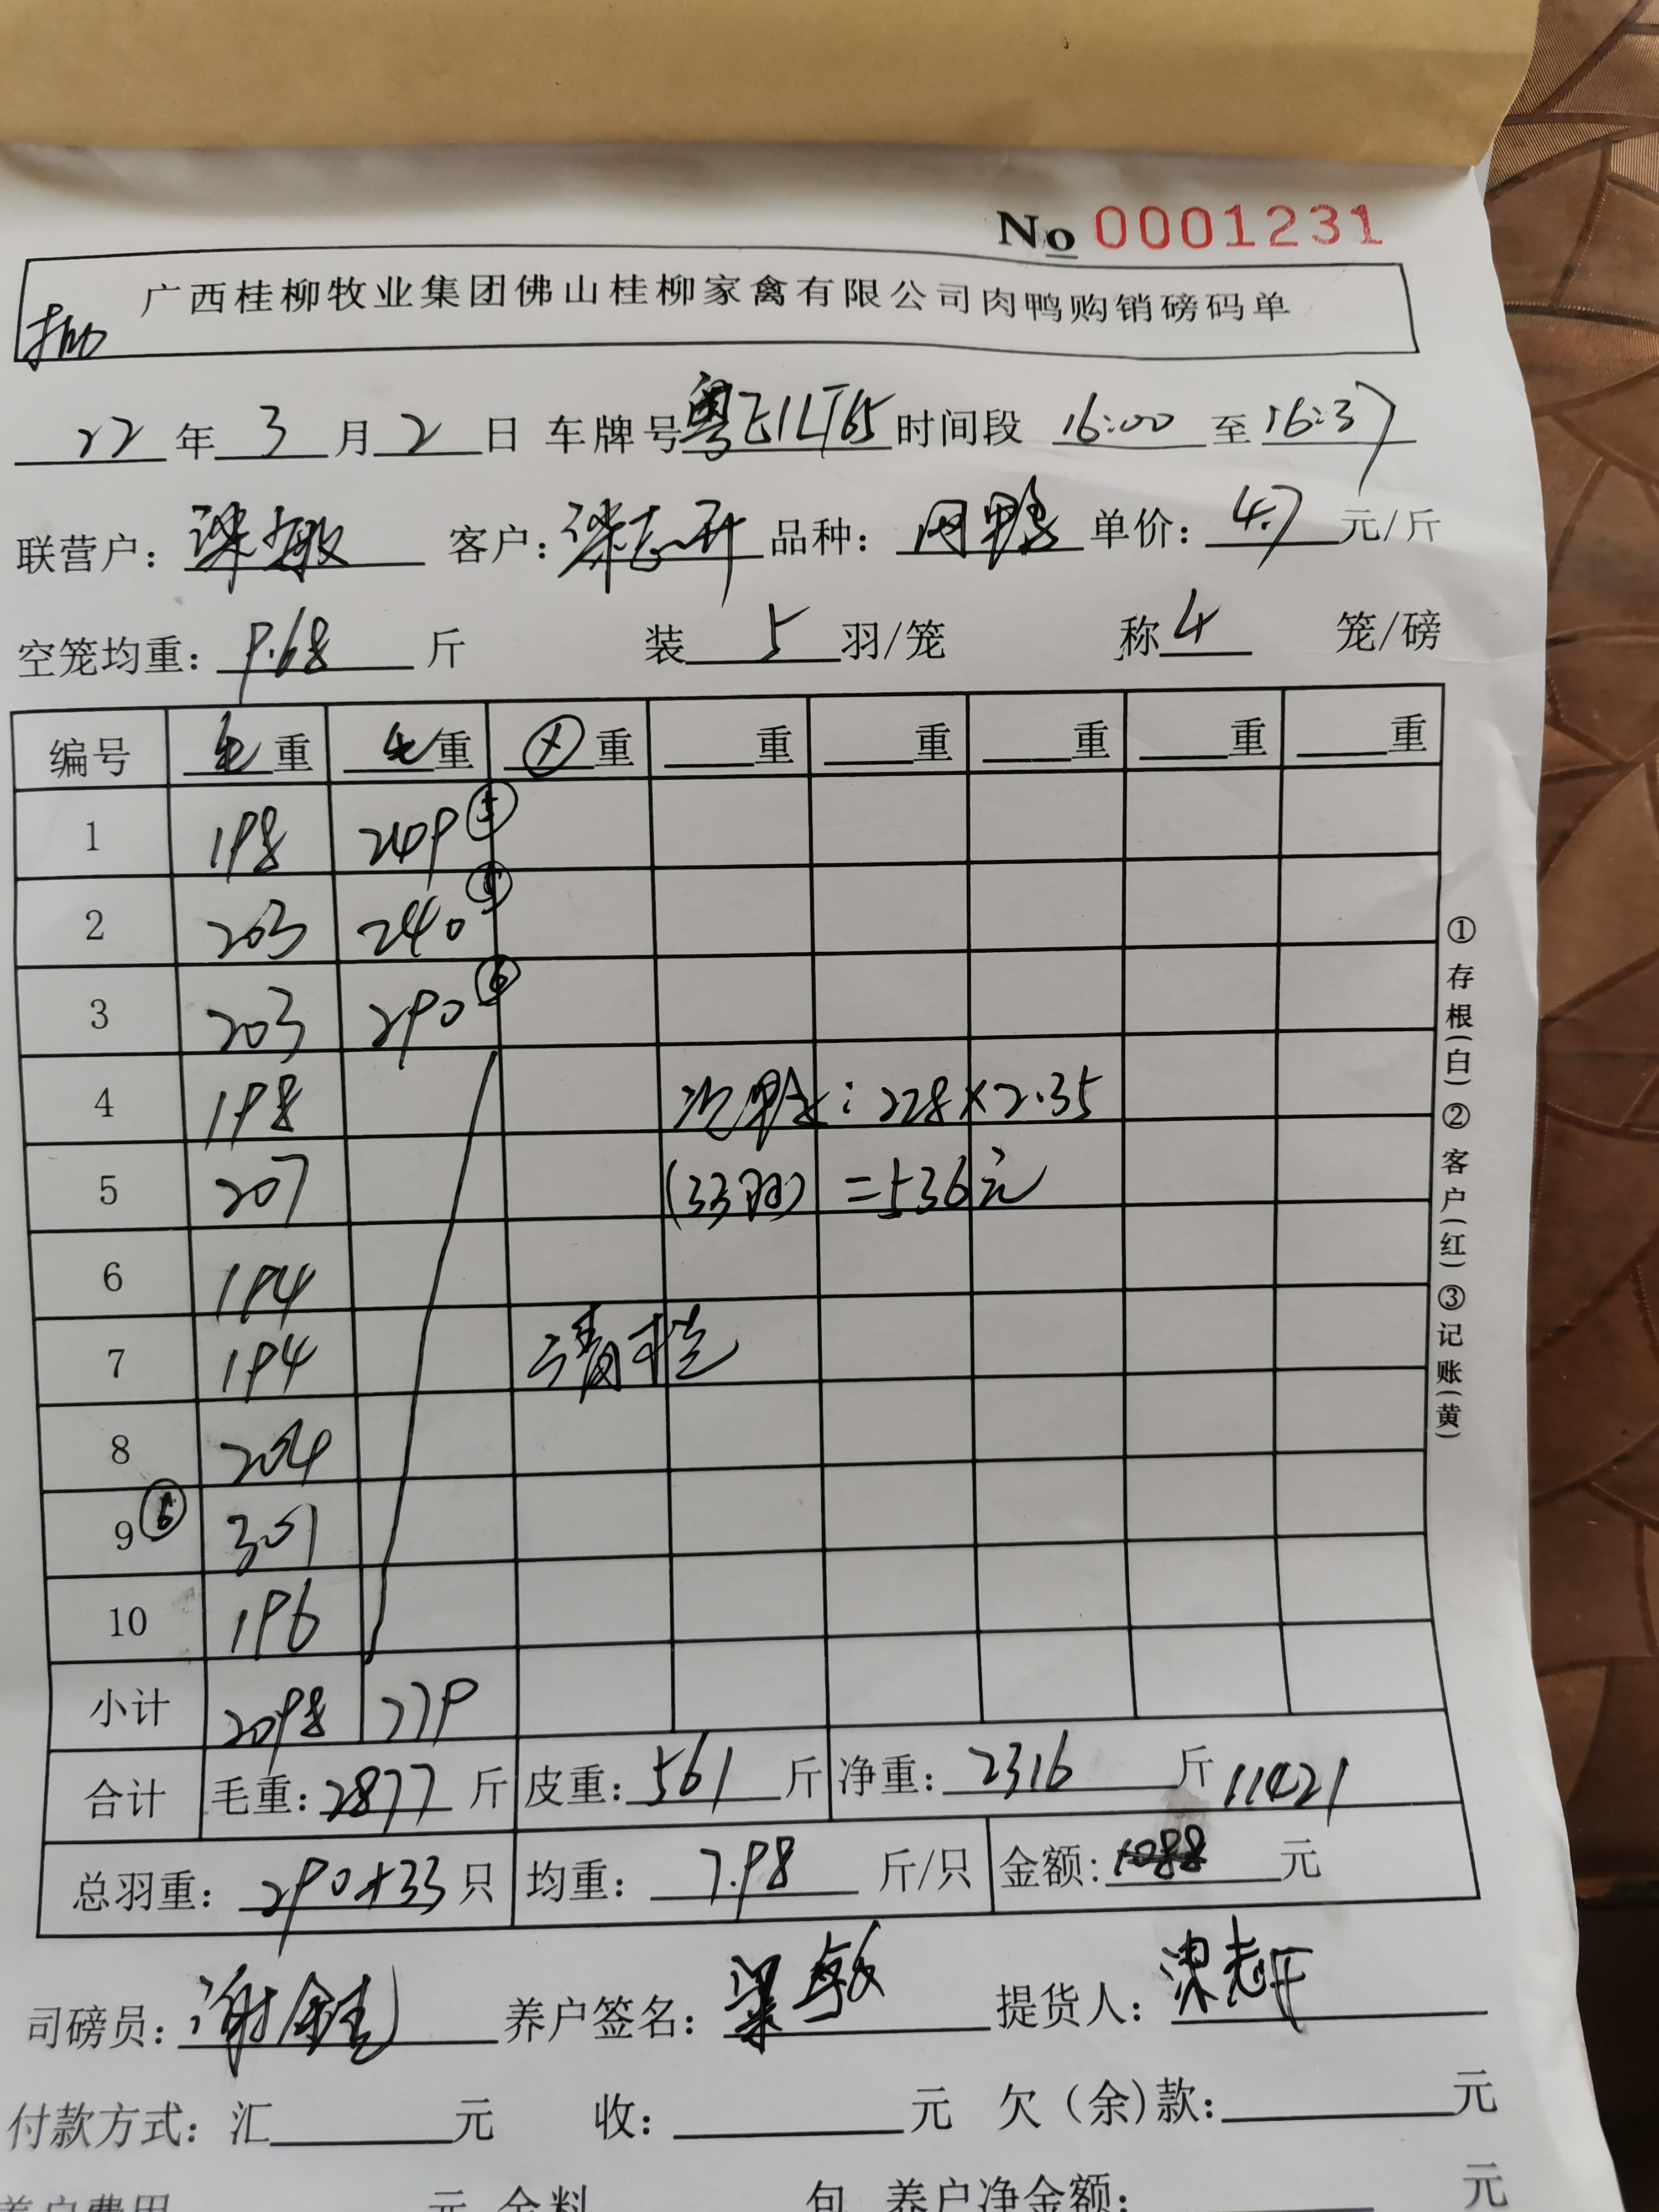 No 0001231
广西桂柳牧业集团佛山桂柳家禽有限公司肉鸭购销磅码单
22年3月2日 车牌号 时间段 16:00 至 16:37
联营户: 梁敏 客户: 梁志 品种: 肉鸭 单价: 4.7 元/斤
空笼均重: 9.68 斤 装 5 羽/笼 称 4 笼/磅
编号 毛重 毛重 重 重 重 重 重 重
1 198 249 ⑤
2 203 240 ⑤
3 203 290 ⑥
4 198 次鸭: 228×2.35
5 207 (33羽) =536元
6 194
7 194 清栏
8 204
9 ⑥ 301
10 196
小计 2098 779
合计 毛重: 2877 斤 皮重: 561 斤 净重: 2316 斤 11421
总羽重: 290+33 只 均重: 7.98 斤/只 金额: 元
司磅员: 谢 养户签名: 梁敏 提货人: 梁志
付款方式: 汇 元 收: 元 欠(余)款: 元
养户费用 元 余料 包 养户净金额: 元
①存根(白)②客户(红)③记账(黄)